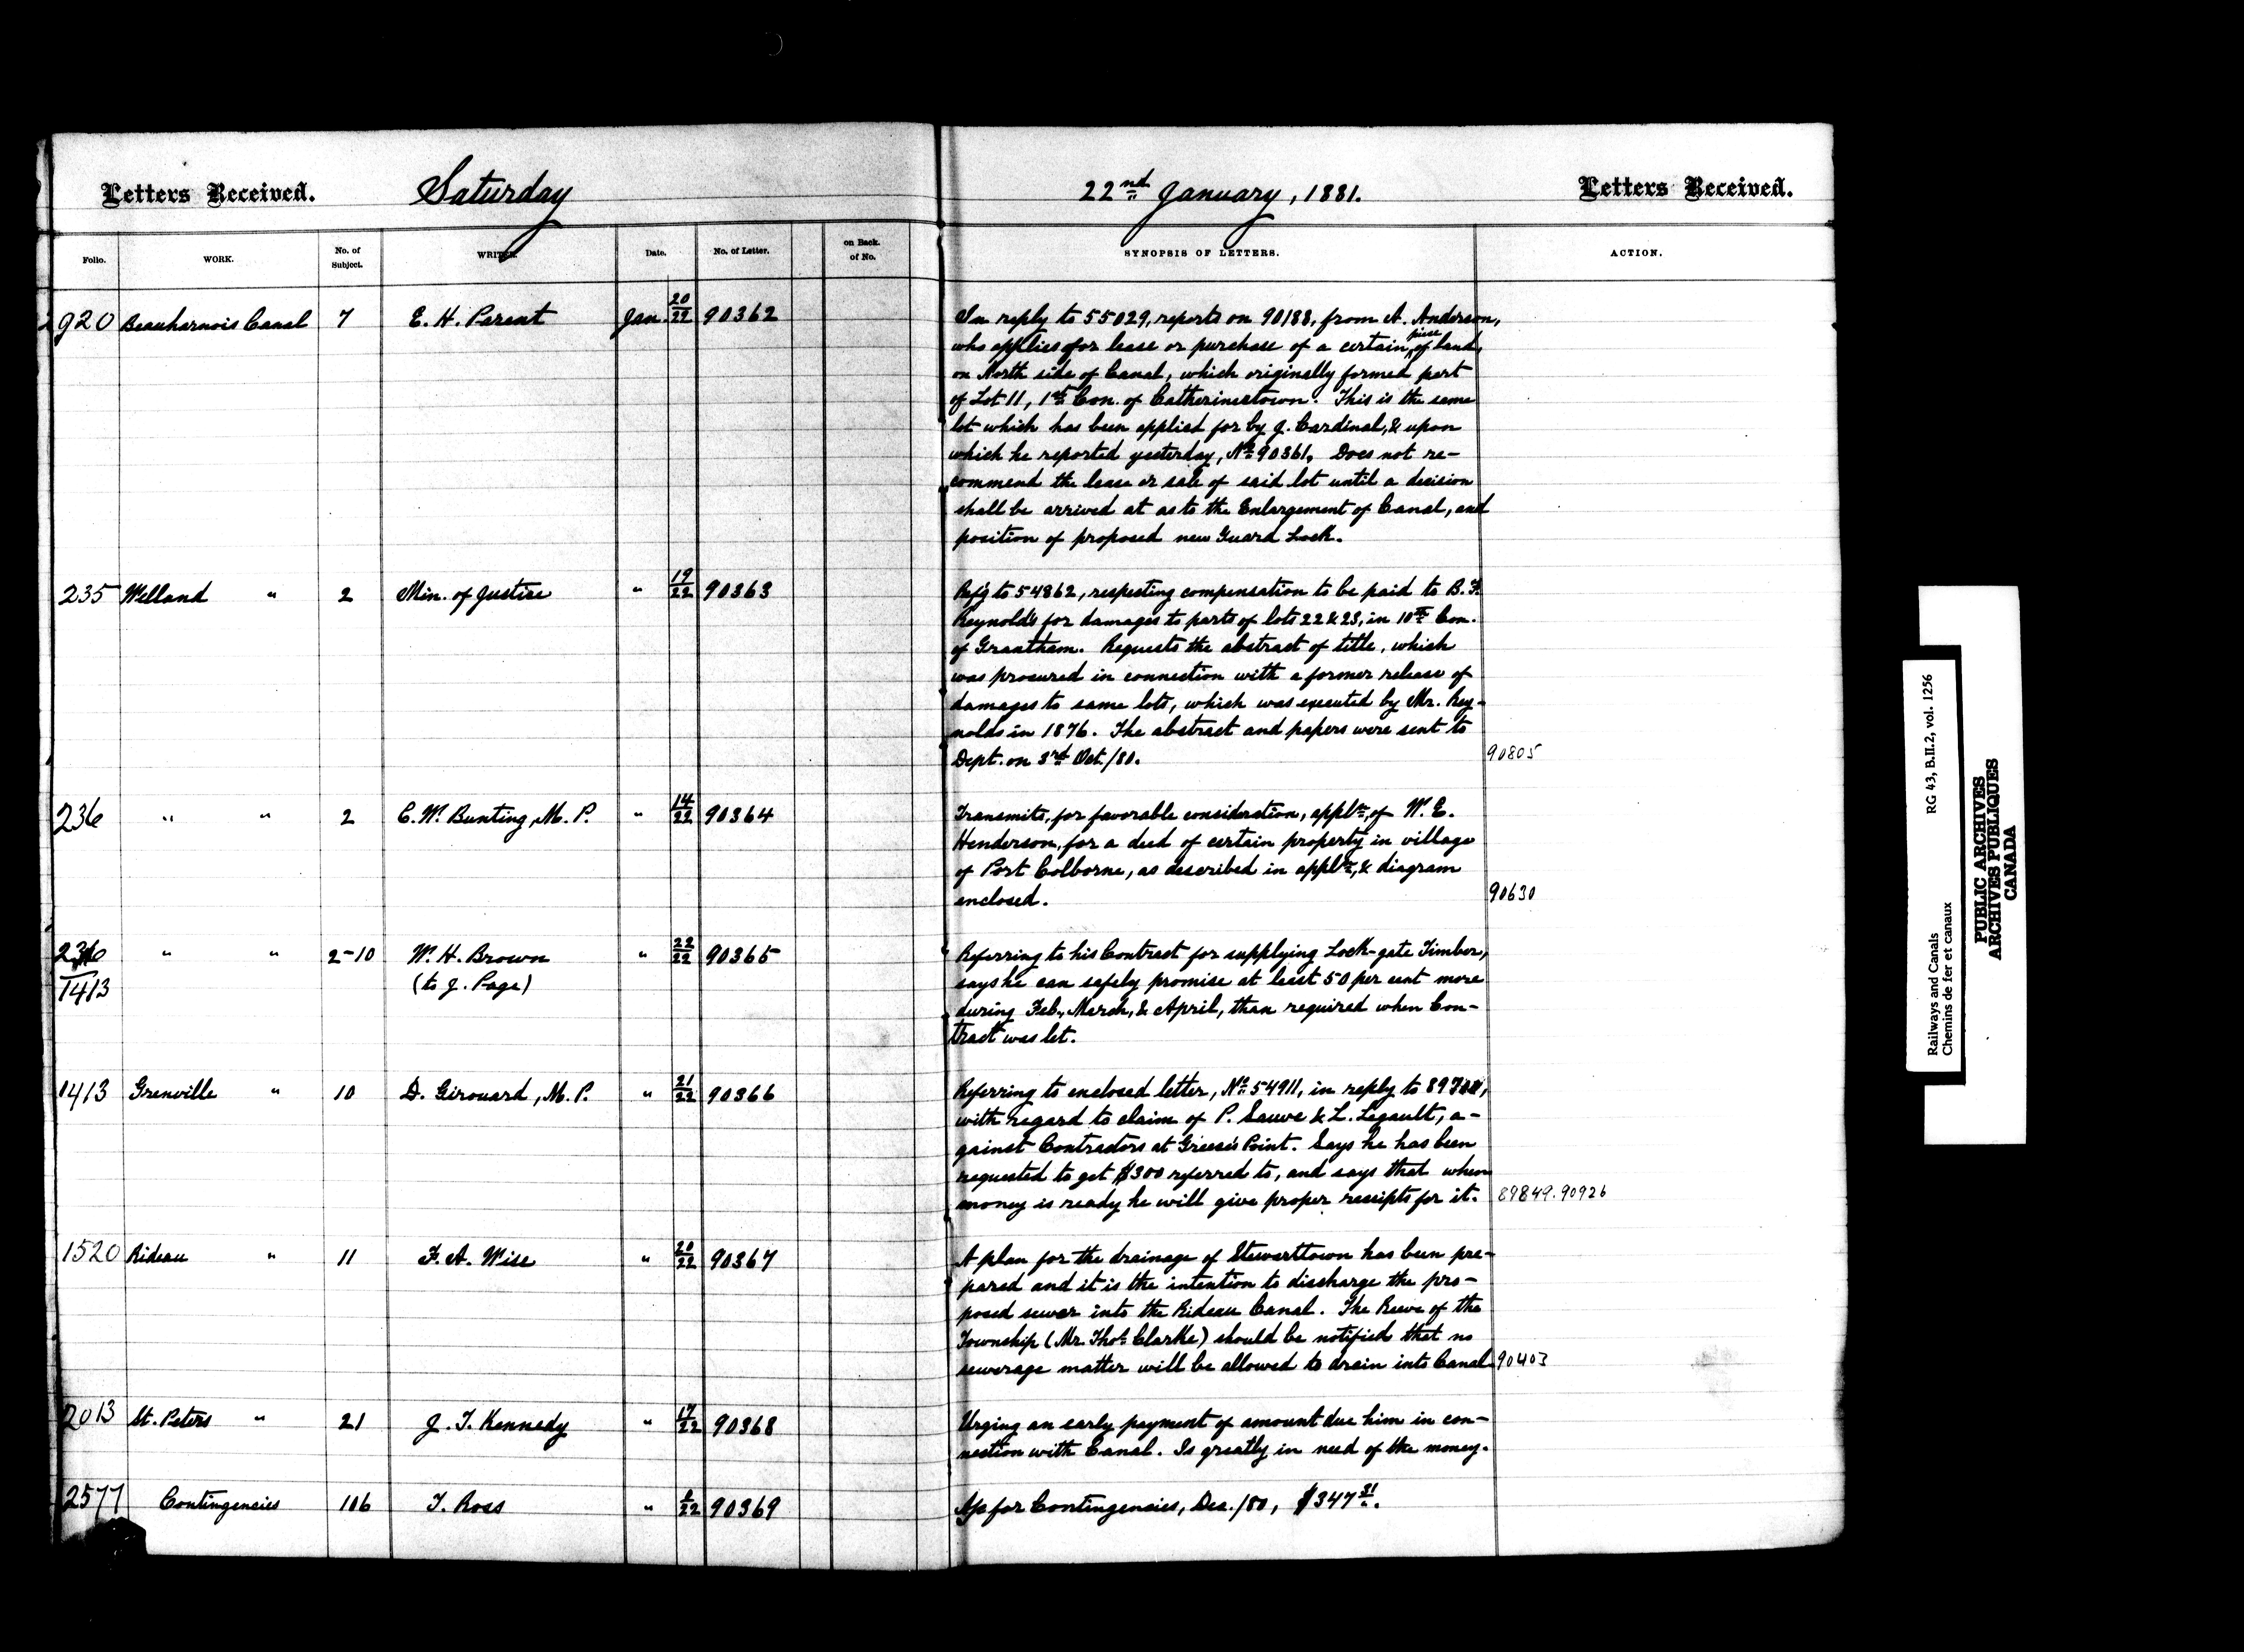 Letters Received. Saturday 22nd January, 1881. Letters Received.
Folio. WORK. No. of Subject. WRITER. Date. No. of Letter. on Back. of No. SYNOPSIS OF LETTERS. ACTION.
920 Beauharnois Canal 7 E. H. Parent Jan. 20/22 90362 In reply to 55029, reports on 90188, from A. Anderson,
who applies for lease or purchase of a certain piece of land,
on North side of Canal, which originally formed part
of Lot 11, 1st Con. of Catherinestown. This is the same
lot which has been applied for by J. Cardinal, & upon
which he reported yesterday, No. 90361. Does not re-
commend the lease or sale of said lot until a decision
shall be arrived at as to the Enlargement of Canal, and
position of proposed new Guard Lock.
235 Welland " 2 Min. of Justice " 19/22 90363 Refg to 54862, respecting compensation to be paid to B. F.
Reynolds for damages to parts of lots 22 & 23, in 10th Con.
of Grantham. Requests the abstract of title, which
was procured in connection with a former release of
damages to same lots, which was executed by Mr. Rey-
nolds in 1876. The abstract and papers were sent to
Dept. on 3rd Oct./80. 90805
236 " " 2 C. W. Bunting, M. P. " 14/22 90364 Transmits, for favorable consideration, appltn, of W. E.
Henderson, for a deed of certain property in village
of Port Colborne, as described in appltn, & diagram
enclosed. 90630
236 " " 2-10 W. H. Brown " 22/22 90365 Referring to his Contract for supplying Lock-gate Timber,
1413 (to J. Page) says he can safely promise at least 50 per cent more
during Feb., March, & April, than required when Con-
tract was let.
1413 Grenville " 10 D. Girouard, M. P. " 21/22 90366 Referring to enclosed letter, No. 54911, in reply to
with regard to claim of P. Sauve & L. Legault, a-
gainst Contractors at Greece's Point. Says he has been
requested to get $300 referred to, and says that when
money is ready he will give proper receipts for it. 89849. 90926
1520 Rideau " 11 F. A. Wise " 20/22 90367 A plan for the drainage of Stewarttown has been pre-
pared and it is the intention to discharge the pro-
posed sewer into the Rideau Canal. The Reeve of the
Township (Mr. Thos. Clarke) should be notified that no
sewerage matter will be allowed to drain into Canal 90403
2013 St. Peters " 21 J. T. Kennedy " 17/22 90368 Urging an early payment of amount due him in con-
nection with Canal. Is greatly in need of the money.
2577 Contingencies 106 T. Ross " /22 90369 Ap for Contingencies, Dec./80, $347.31.
Railways and Canals RG 43, B.II.2, vol. 1256
Chemins de fer et canaux
PUBLIC ARCHIVES
ARCHIVES PUBLIQUES
CANADA